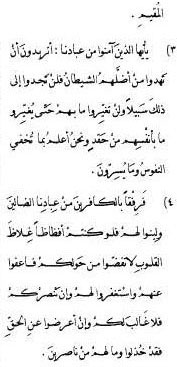 المُقيمِ .
٣) يأيها الذين آمنوا من عبادنا : أتريدون أن
تهدوا من أضلهم الشيطان فلن تجدوا إلى
ذلك سبيلاً ولن تغيروا ما بهم حتى يغيروا
ما بأنفسهم من حقد ونحن أعلم بما تخفي
النفوس وما يسرون .
٤) فرفقاً بالكافرين من عبادنا الضالين
ولينوا لهم فلو كنتم أفظاظاً غلاظ
القلوب لانفضوا من حولكم فاعفوا
عنهم واستغفروا لهم وإن ننصركم
فلا غالب لكم وإن أعرضوا عن الحق
فقد خذلوا وما لهم من ناصرين .